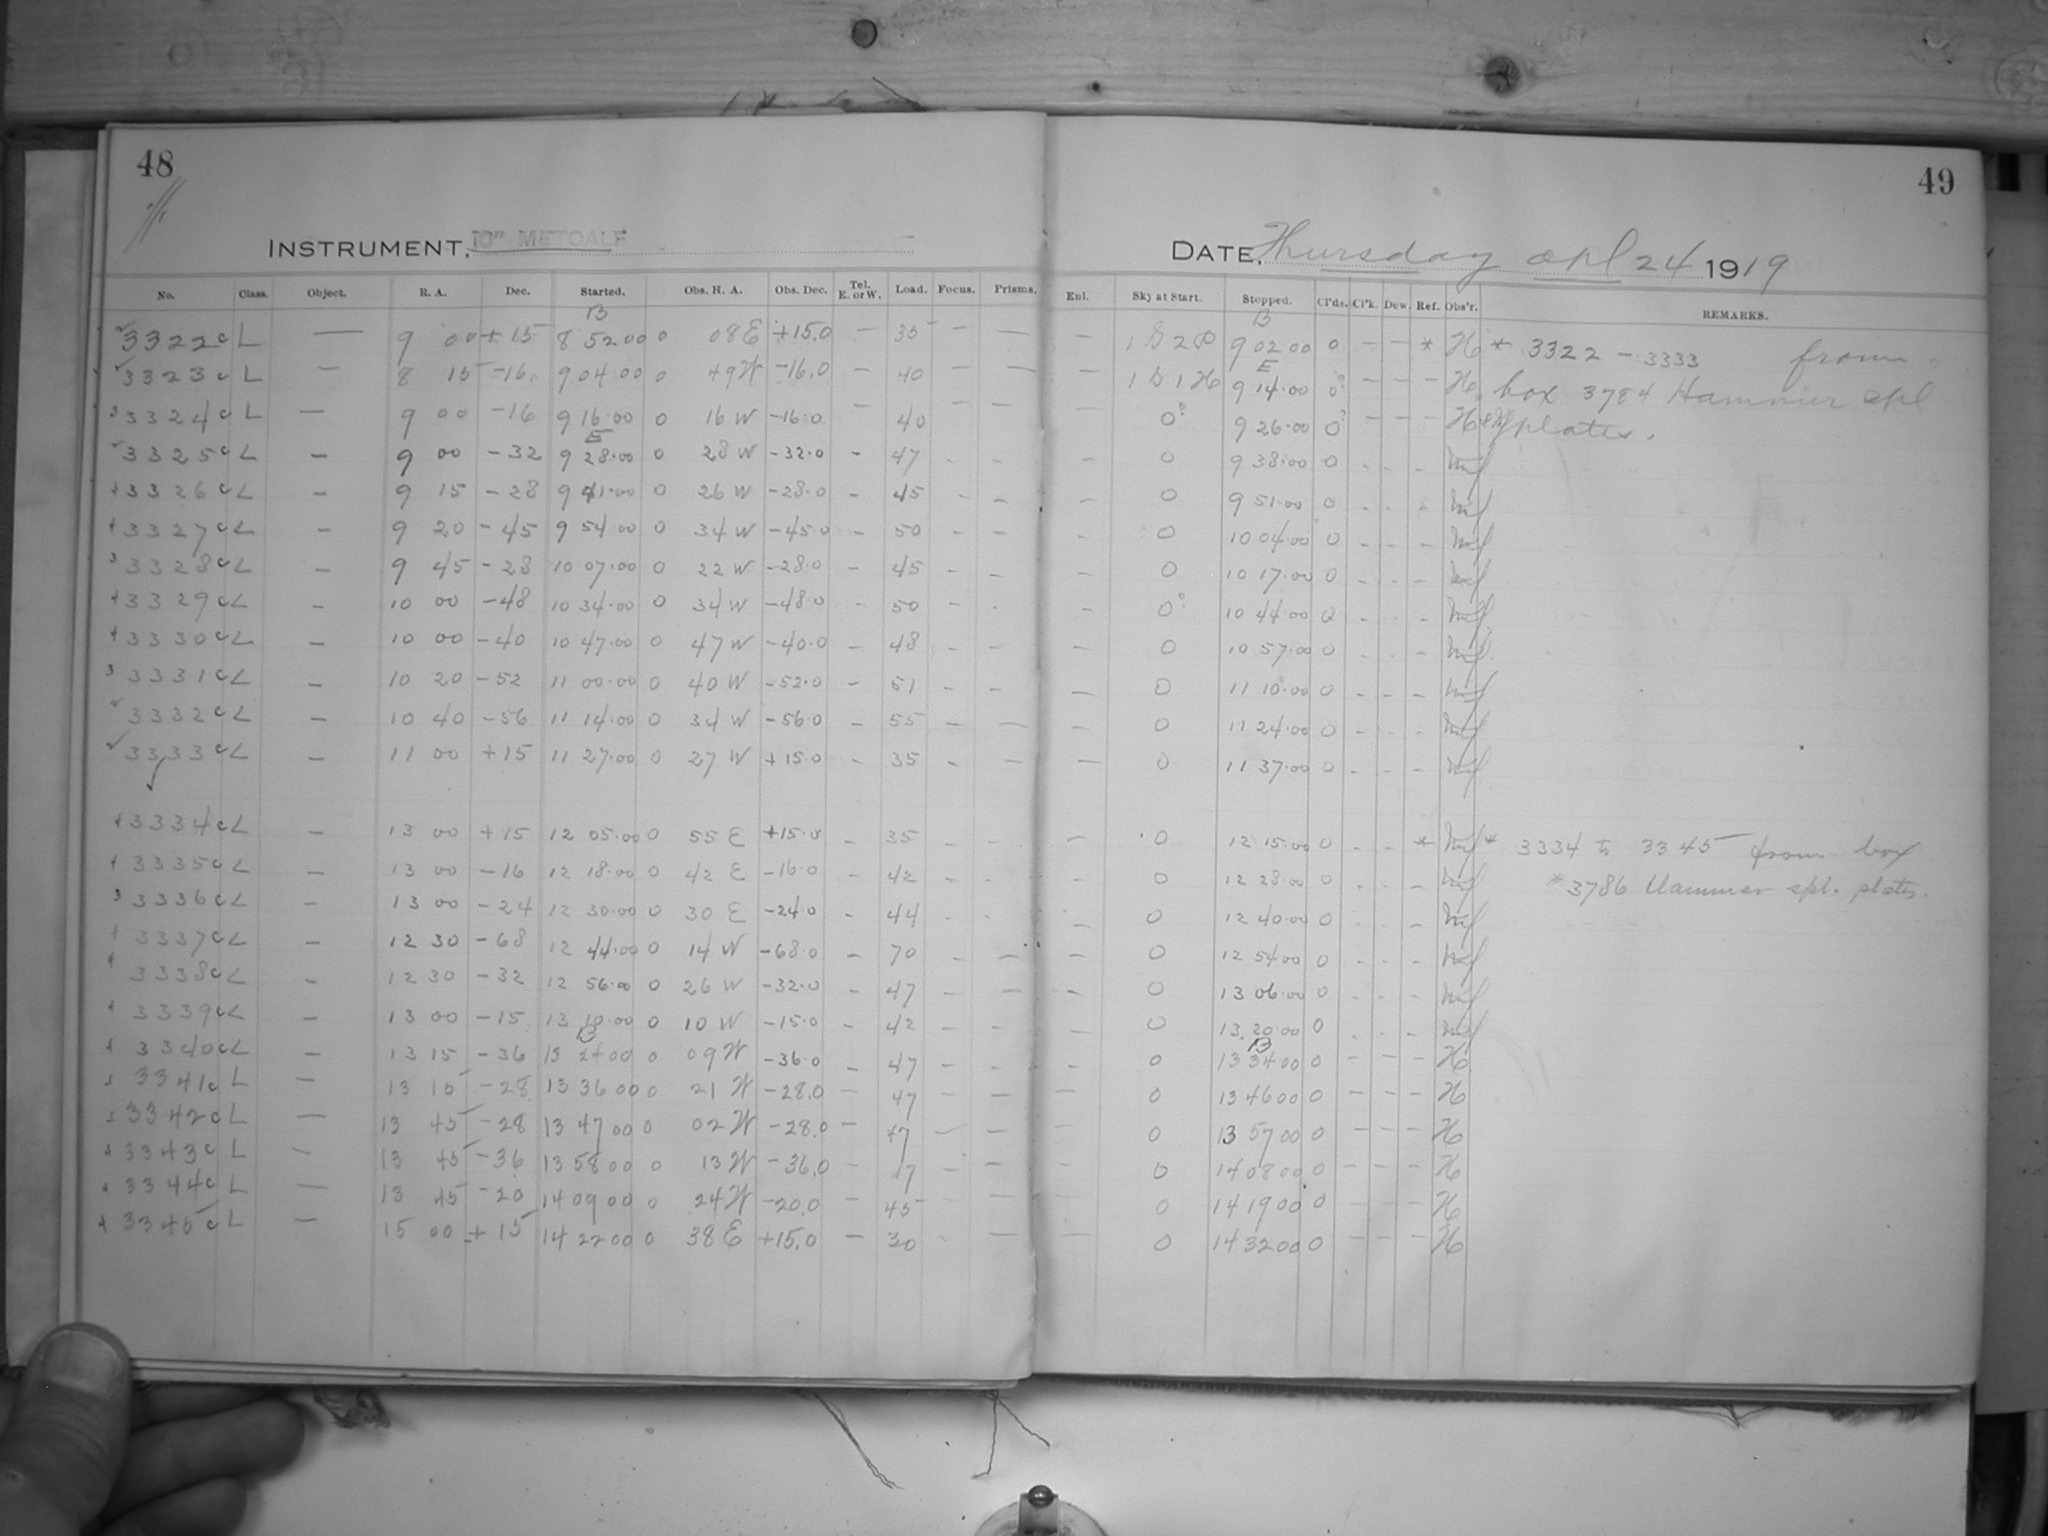 48
INSTRUMENT, 10" METCALF
No. Class. Object. R. A. Dec. Started. Obs. H. A. Obs. Dec. Tel. E. or W. Load. Focus. Prisms.
B
3322c L — 9 00 +15 8 52 00 0 08 E +15.0 — 35 — —
3323c L — 8 15 -16. 9 04.00 0 49 W -16.0 — 40 — —
3324c L — 9 00 -16 9 16.00 0 16 W -16.0 — 40 — —
E
3325c L — 9 00 -32 9 28.00 0 28 W -32.0 - 47 - -
3326c L — 9 15 -28 9 41.00 0 26 W -28.0 - 45 - -
3327c L — 9 20 -45 9 54.00 0 34 W -45.0 - 50 - -
3328c L — 9 45 -28 10 07.00 0 22 W -28.0 - 45 - -
3329c L — 10 00 -48 10 34.00 0 34 W -48.0 - 50 - -
3330c L — 10 00 -40 10 47.00 0 47 W -40.0 - 48 - -
3331c L — 10 20 -52 11 00.00 0 40 W -52.0 - 51 - -
3332c L — 10 40 -56 11 14.00 0 34 W -56.0 - 55 - —
3333c L — 11 00 +15 11 27.00 0 27 W +15.0 - 35 - —
3334c L — 13 00 +15 12 05.00 0 55 E +15.0 - 35 - -
3335c L — 13 00 -16 12 18.00 0 42 E -16.0 - 42 - -
3336c L — 13 00 -24 12 30.00 0 30 E -24.0 - 44 - -
3337c L — 12 30 -68 12 44.00 0 14 W -68.0 - 70 - —
3338c L — 12 30 -32 12 56.00 0 26 W -32.0 - 47 - —
3339c L — 13 00 -15 13 10.00 0 10 W -15.0 - 42 - —
B
3340c L — 13 15 -36 13 24 00 0 09 W -36.0 - 47 - —
3341c L — 13 15 -28 13 36 00 0 21 W -28.0 — 47 - —
3342c L — 13 45 -28 13 47 00 0 02 W -28.0 — 47 — —
3343c L — 13 45 -36 13 58 00 0 13 W -36.0 — 47 - —
3344c L — 13 45 -20 14 09 00 0 24 W -20.0 — 45 — —
3345c L — 15 00 +15 14 22 00 0 38 E +15.0 — 30 - —
49
DATE, Thursday Apl 24 1919
Enl. Sky at Start. Stopped. Cl'ds. Cl'k. Dew. Ref. Obs'r. REMARKS.
B
— 9 02 00 0 — — * H * 3322 - 3333 from
E
— 9 14.00 0? — — — H box 3784 Hammer spl
— 0? 9 26.00 0? — — — H plates.
— 0 9 38.00 0 - - -
— 0 9 51.00 0 - - -
- 0 10 04.00 0 - - -
- 0 10 17.00 0 - - -
- 0? 10 44.00 0 - - -
— 0 10 57.00 0 - - -
— 0 11 10.00 0 - - -
— 0 11 24.00 0 - - -
— 0 11 37.00 0 - - -
— 0 12 15.00 0 - - * * 3334 to 3345 from box
— 0 12 28.00 0 - - - *3786 Hammer spl. plates.
— 0 12 40.00 0 - - -
- 0 12 54.00 0 - - -
— 0 13 06.00 0 - - -
— 0 13 20.00 0 - - -
B
— 0 13 34 00 0 — — — H
— 0 13 46 00 0 — — — H
— 0 13 57 00 0 — — — H
— 0 14 08 00 0 — — — H
— 0 14 19 00 0 — — — H
— 0 14 32 00 0 — — — H